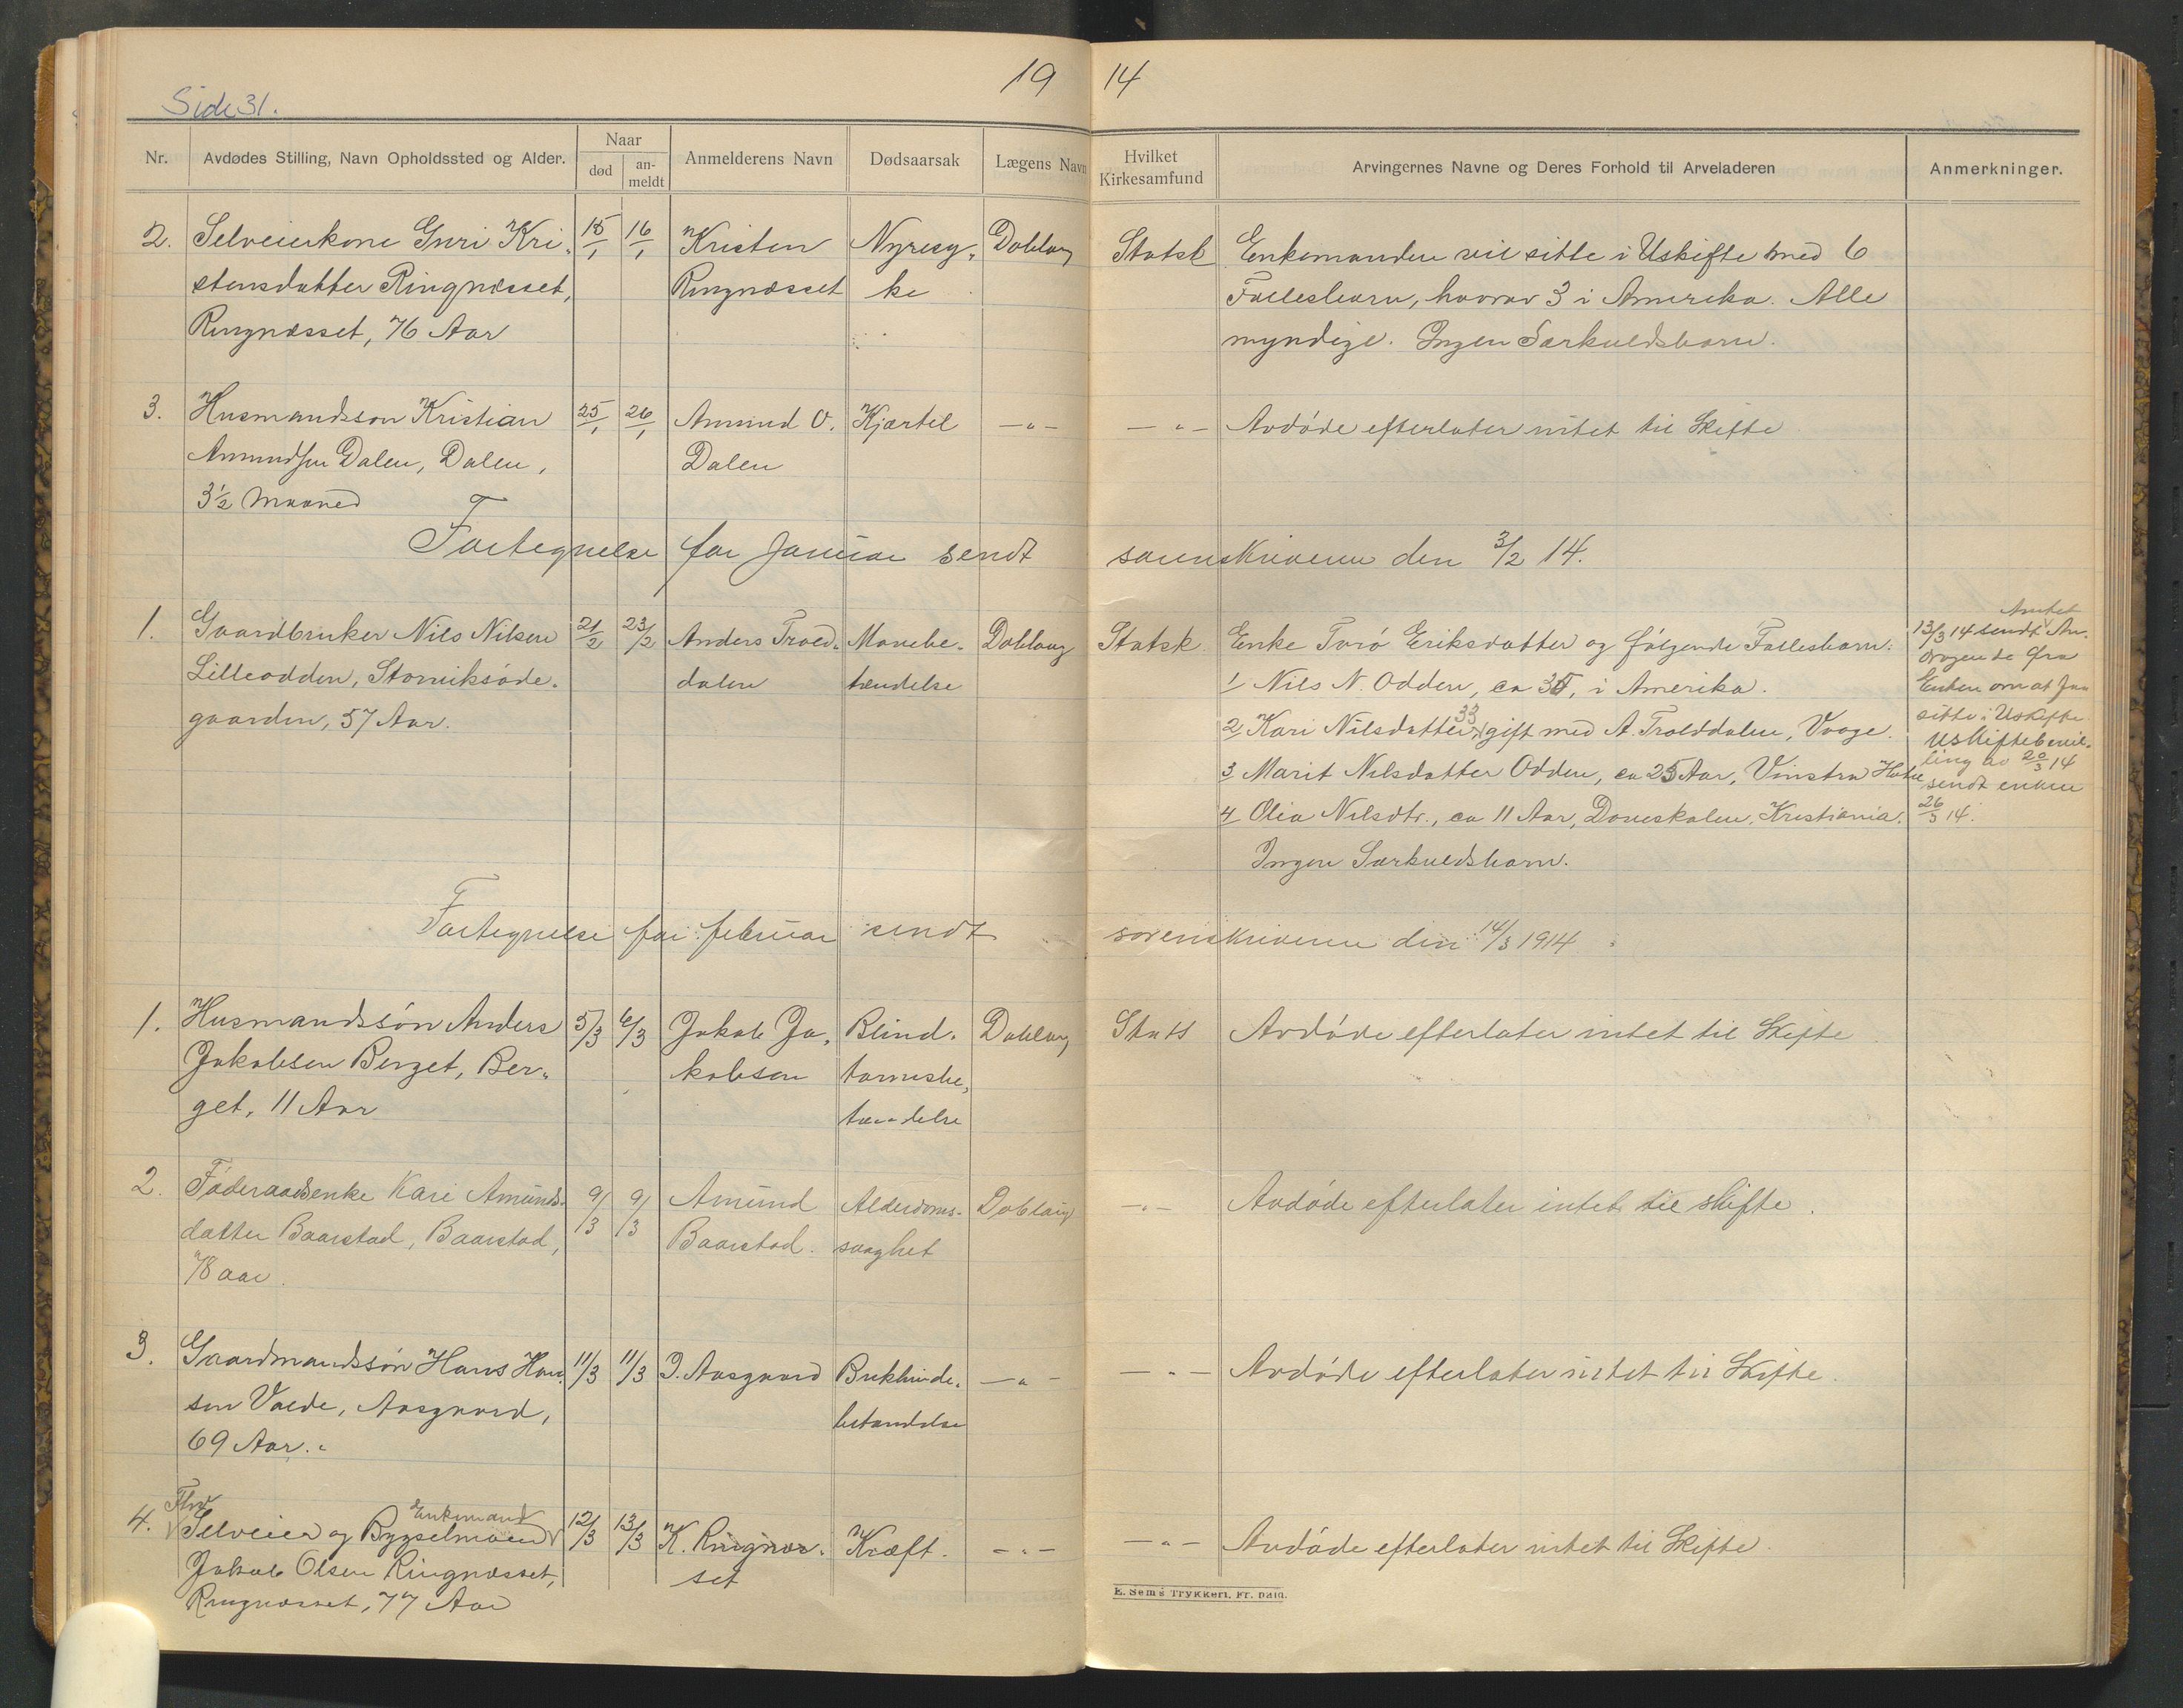 19 14
Side 31.
Nr. Avdødes Stilling, Navn Opholdssted og Alder. Naar død an-meldt Anmelderens Navn Dødsaarsak Lægens Navn Hvilket Kirkesamfund Arvingernes Navne og Deres Forhold til Arveladeren Anmerkninger.
2. Selveierkone Guri Kri- 15/1 16/1 Kristen Nyresy- Doblaug Statsk Enkemanden vil sitte i Uskifte med 6
stensdatter Ringnæsset, Ringnæsset ke Fællesbarn, hvorav 3 i Amerika. Alle
Ringnæsset, 76 Aar myndige. Ingen Særkuldsbarn.
3. Husmandssøn Kristian 25/1 26/1 Amund O. Kjertel —"— —"— Avdøde efterlater intet til Skifte
Amundsen Dalen, Dalen, Dalen
3½ Maaned
Fortegnelse for Januar sendt sorenskriveren den 3/2 14.
1. Gaardbruker Nils Nilsen 21/2 23/2 Anders Trold- Mavebe- Doblaug Statsk. Enke Torø Eriksdatter og følgende Fællesbarn:
Lilleodden, Storviksøde- dalen tændelse 1/ Nils N. Odden, ca 35, i Amerika.
gaarden, 57 Aar. 2/ Kari Nilsdatter 33 gift med A. Trolddalen, Vaage.
3/ Marit Nilsdatter Odden, ca 25 Aar, Vinstra Hotel
4/ Olia Nilsdtr., ca 11 Aar, Døveskolen, Kristiania.
Ingen Særkuldsbarn.
Amtet
13/3 14 sendt An-
dragende fra
Enken om at faa
sitte i Uskifte
Uskiftebevil-
ling av 20/3 14
sendt enken
26/3 14.
Fortegnelse for februar sendt sorenskriveren den 14/3 1914.
1. Husmandssøn Anders 5/3 6/3 Jakob Ja- Blind- Doblaug Stats Avdøde efterlater intet til Skifte
Jakobsen Berget, Ber- kobsen tarmsbe-
get, 11 Aar tændelse
2. Føderaadsenke Kari Amunds- 9/3 9/3 Amund Alderdoms- Doblaug —"— Avdøde efterlater intet til skifte.
datter Baarstad, Baarstad, Baarstad. svaghet
78 aar.
3. Gaardmandssøn Hans Han- 11/3 11/3 Aasgaard Bukhinde- —"— —"— Avdøde efterlater intet til Skifte.
sen Volde, Aasgaard, betændelse
69 Aar.
Fhv Enkemand
4. Selveier og Bygselmand 12/3 13/3 K. Ringnæs- Kræft. —"— —"— Avdøde efterlater intet til Skifte.
Jakob Olsen Ringnæsset, set
Ringnæsset, 77 Aar
E. Sem's Trykkeri, Fr. hald.